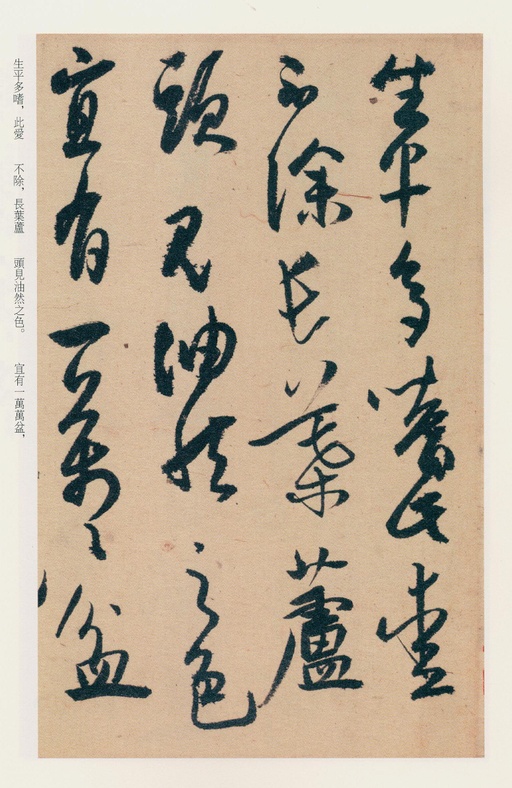 生平多嗜此
不除長葉蘆
頭見油然之色
宜有一萬々盆
生平多嗜,此愛 不除,長葉蘆 頭見油然之色。 宜有一萬萬盆,